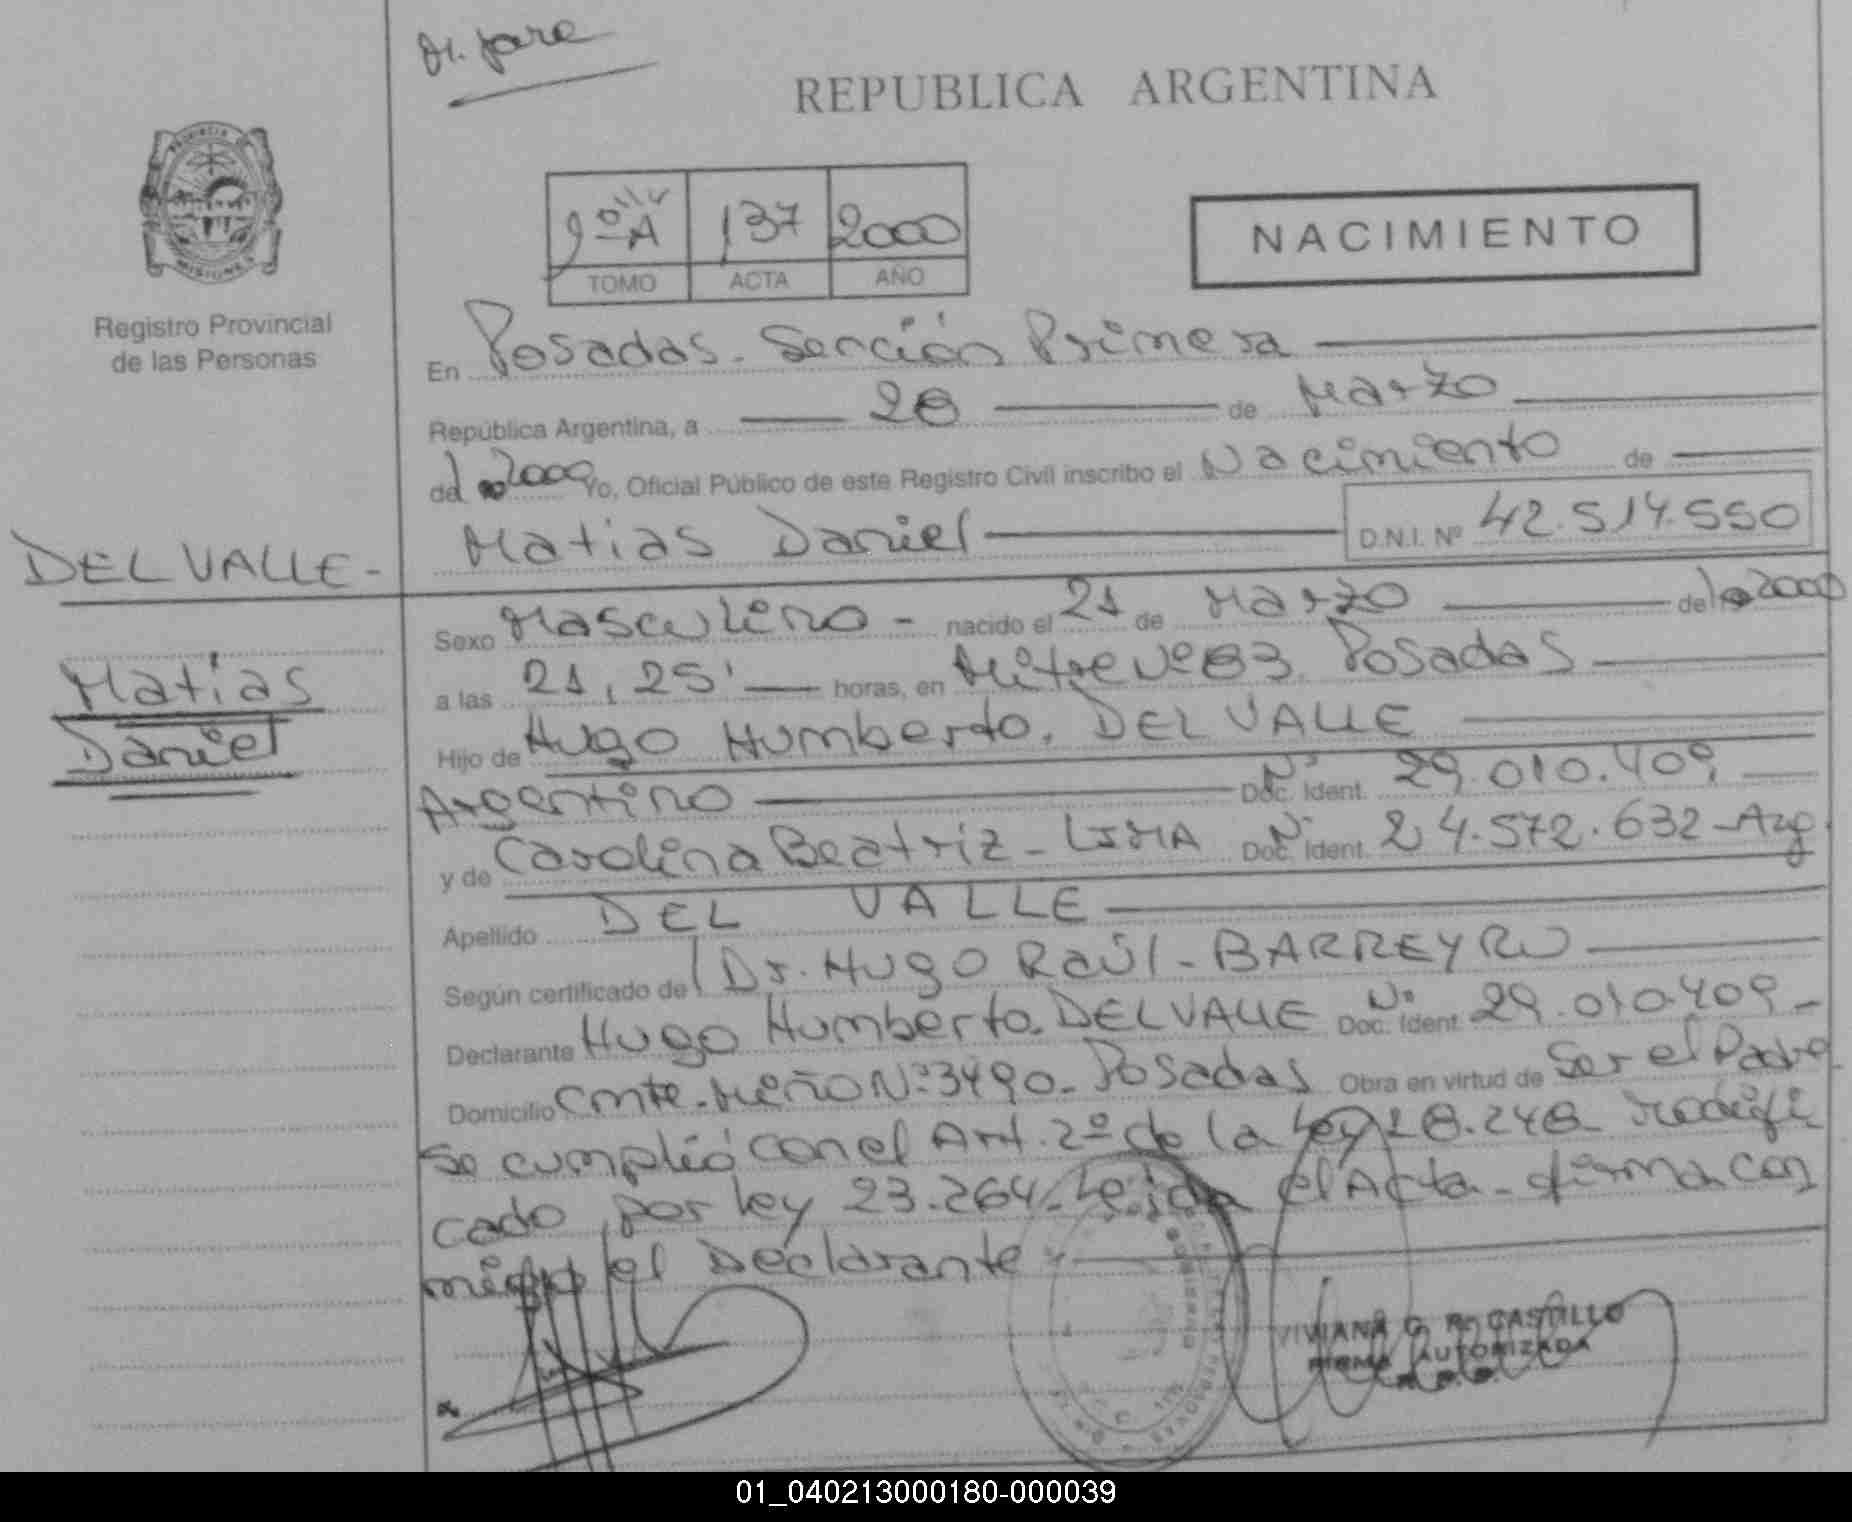 REPUBLICA ARGENTINA
PROVINCIA DE
MISIONES
Registro Provincial
de las Personas
137 2000
TOMO ACTA AÑO
NACIMIENTO
En Posadas. Sección Primera
República Argentina, a 28 de Marzo
del 2000 Yo, Oficial Público de este Registro Civil inscribo el Nacimiento de
Matias Daniel D.N.I. Nº 42.514.550
DEL VALLE-
Matias
Daniel
Sexo Masculino - nacido el 21 de Marzo del 2000
a las 21,25' horas, en Mitre Nº 83. Posadas
Hijo de Hugo Humberto. DEL VALLE
Argentino Nº Doc. Ident. 29.010.409
y de Carolina Beatriz - LIMA Nº Doc. Ident. 24.572.632-Arg.
Apellido DEL VALLE
Según certificado del Dr. Hugo Raúl - BARREYRO
Declarante Hugo Humberto. DEL VALLE Nº Doc. Ident 29.010.409-
Domicilio Cmte. Miño Nº 3490- Posadas Obra en virtud de Ser el Padre
Se cumplió con el Art. 2º de la Ley 18.248 Modifi
cado por Ley 23.264. Leida el Acta - firma con
migo el Declarante
VIVIANA G. R. CASTILLO
FIRMA AUTORIZADA
01_040213000180-000039